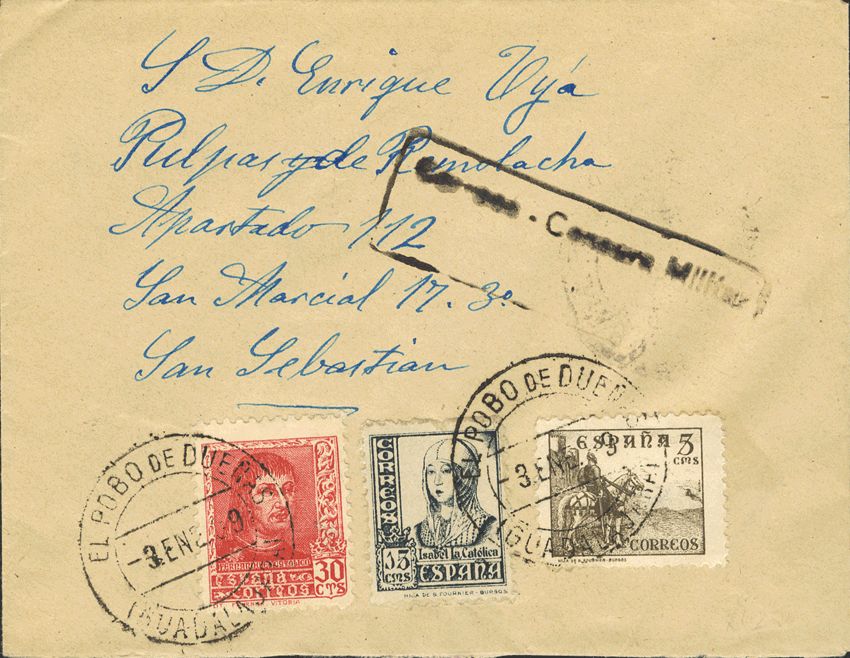 S D. Enrique Vyá
Pulpas y de Remolacha
Apartado 112
San Marcial 17. 3º
San Sebastian
Censura Militar
EL POBO DE DUEÑAS
-3.ENE.39
(GUADALAJARA)
FERNANDO EL CATOLICO
30
ESPAÑA CTS
CORREOS
VITORIA
CORREOS
15
CMS
Isabel la Católica
ESPAÑA
HIJA DE B. FOURNIER - BURGOS
EL POBO DE DUEÑAS
-3.ENE.39
(GUADALAJARA)
ESPAÑA 5
CMS
CORREOS
HIJA DE B. FOURNIER - BURGOS